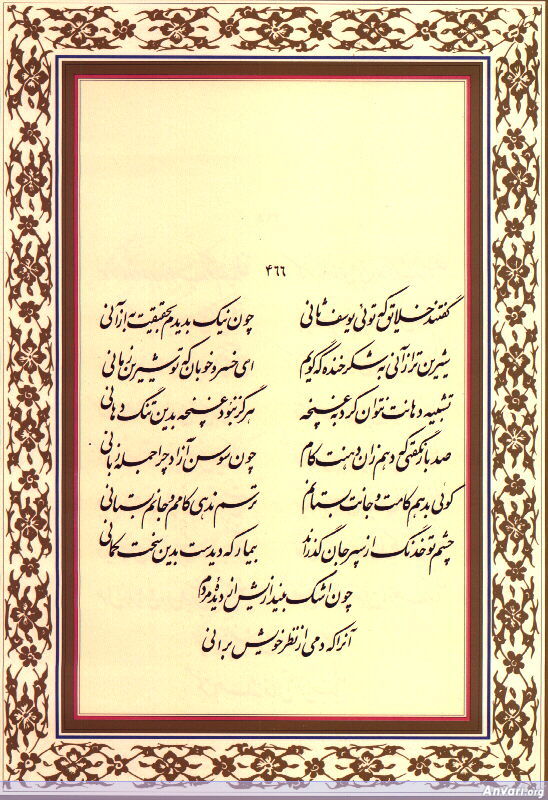 ۴۶۶
گفتند خلایق که توئی یوسف ثانی چون نیک بدیدم بحقیقت به از آنی
شیرین‌تر از آنی بشکر خنده که گویم ای خسرو خوبان که تو شیرین زمانی
تشبیه دهانت نتوان کرد به غنچه هرگز نبود غنچه بدین تنگ دهانی
صد بار بگفتی که دهم زان دهنت کام چون سوسن آزاد چرا جمله زبانی
گوئی بدهم کامت و جانت بستانم ترسم ندهی کامم و جانم بستانی
چشم تو خدنگ از سپر جان گذراند بیمار که دیدست بدین سخت کمانی
چون اشک بیندازیش از دیدهٔ مردم
آنرا که دمی از نظر خویش برانی
Anvari.org